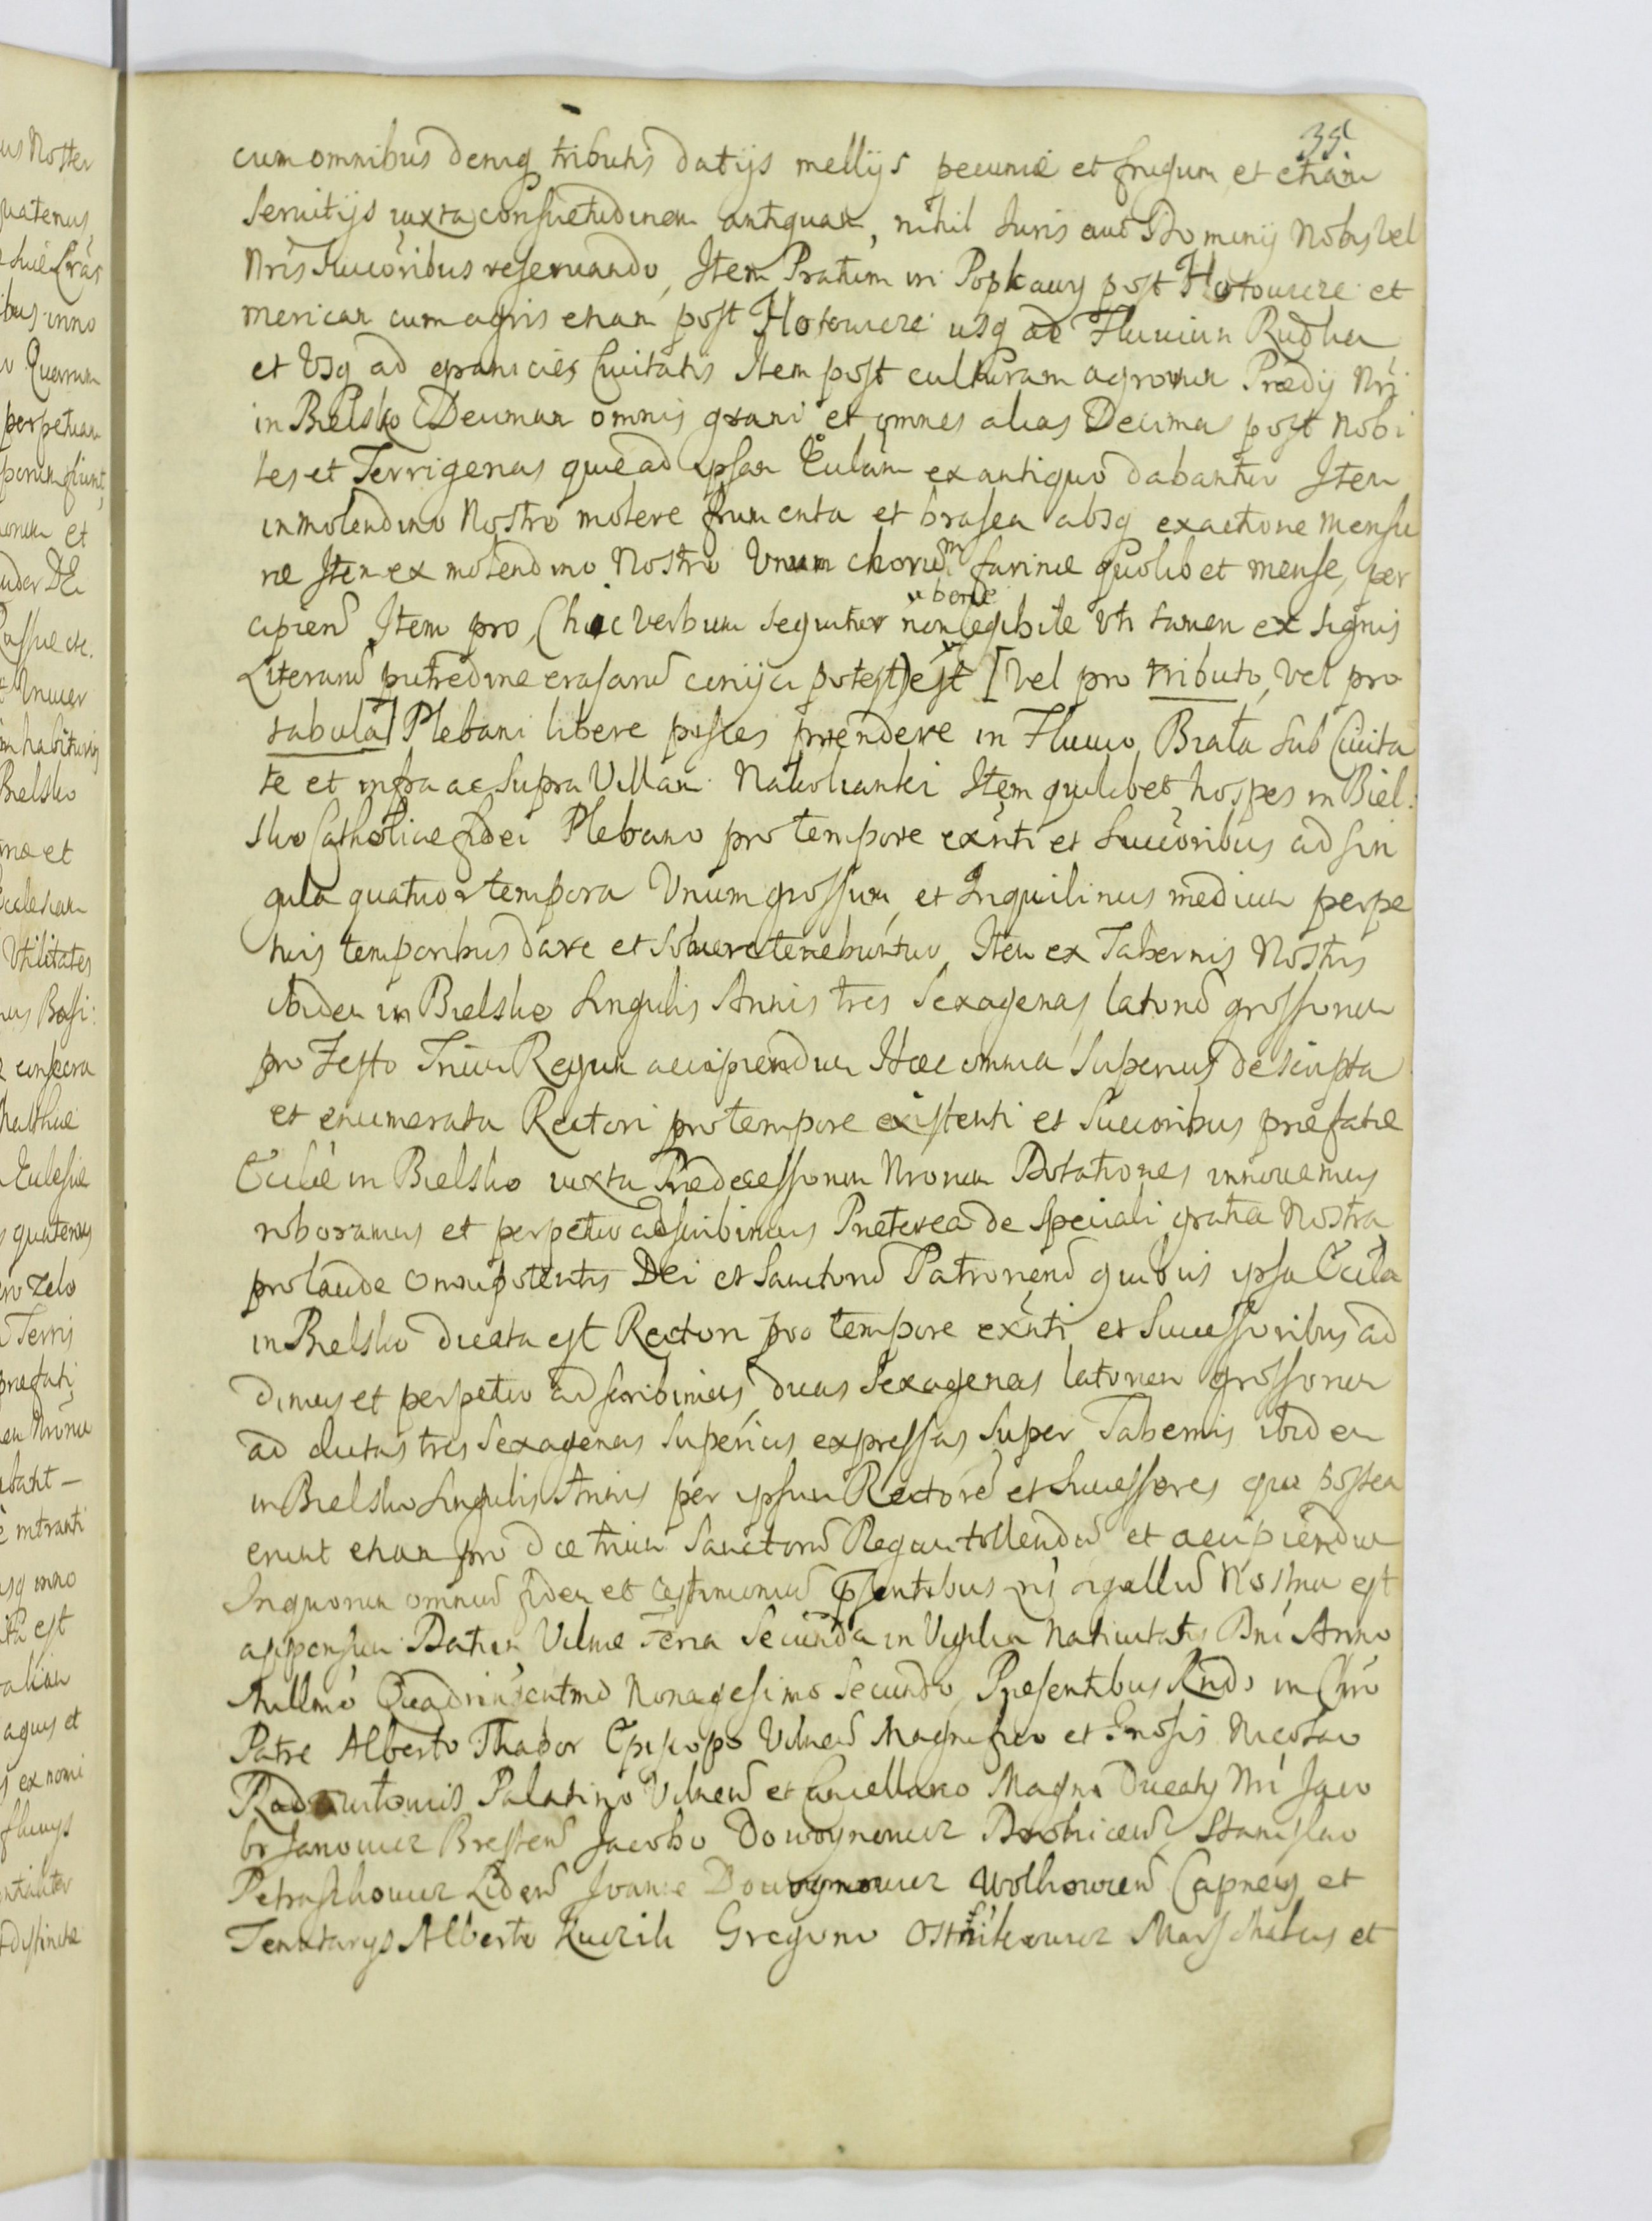 35.
cum omnibus deniq tributis datijs mellijs pecuniæ et frugum et etiam
Seruitijs iuxta consuetudinem antiquam, nihil Iuris aut Dominij Nobis vel
Nris Succoribus reseruando, Item Pratum in Popkawy post Hotowicze et
mericam cum agris etiam post Hotowicze usq ad Fluuium Rudka
et Vsq ad granicies Ciuitatis Item post culturam agrorum Prædij Nri
in Bielsko Decimam omnis grani et omnes alias Decimas post Nobi
les et Terrigenas quæ ad ipsam Eccliam ex antiquo dabantur Item
in molendino Nostro molere frumenta et brasea absq exactione mensu
ræ Item ex molendino Nostro Vnum chorum farinæ quolibet mense, per
cipiend Item pro, (hic verbum sequitur non bene legibile Vti tamen ex signis
Literarum putredine erasarum conijci potest) est [Vel pro tributo, Vel pro
tabula] Plebani libere pisces prendere in Fluuio Biała sub Ciuita
te et infra ac supra Villam Item quilibet hospes in Biel:
sko Catholicæ fidei Plebano pro tempore exnti et Succoribus ad sin
gula quatuor tempora Vnum grossum, et Inquilinus medium perpe
tuis temporibus dare et soluere tenebuntur, Item ex Tabernis Nostris
ibidem in Bielsko singulis Annis tres Sexagenas latorum grossorum
pro Festo Trium Regum accipiendum Hæc omnia Superius descripta
et enumerata Rectori pro tempore existenti et Succoribus præfatæ
Eccliæ in Bielsko iuxta Prædecessorum Nrorum Dotationes innouemus
roboramus et perpetuo adscribimus Præterea de speciali gratia Nostra
pro laude Omnipotentis Dei et Sanctorum Patronorum quibus ipsa Ecclia
in Bielsko dicata est Rectori pro tempore exnti et Successoribus ad
dimus et perpetuo adscribimus duas Sexagenas latorum grossorum
ad dictas tres Sexagenas superius expressas super Tabernis ibidem
in Bielsko singulis Annis per ipsum Rectorem et Successores qui postea
erunt etiam pro die trium Sanctorum Regum tollendum et accipiendum
In quorum omnium fidem et testimonium pntibus sigillum Nostrum est
appensum Datum Vilnæ Feria Secunda in Vigilia Natiuitatis Dni Anno
Millmo Quadringentmo Nonagesimo Secundo, Presentibus Rndo in Chro
Patre Alberto Thabor Episcopo Vilnen Magnifico et Gnosis Nicolao
Radiuilouis Palatino Vilnen et Cancellario Magni Ducatus Nri Jaco
bo Janouicz Bresten Jacobo Dowoynowicz Drohicen Stanislao
Petraschouicz Liden Ivanie Dowoynowicz Wolkowicen Capneis et
Tenutarys Alberto Kuczik Gregorio Ostikowicz Marschalcis et